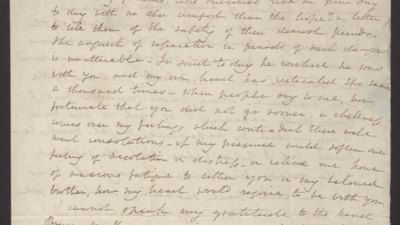 to day with no other comfort than the hope of a letter
to tell them of the safety of their dearest friends.
The anguish of separation, in periods of such danger
is unutterable – In said to day he wished he was
with you, and my own heart has reiterated the same
a thousand times – When people say to me, how
fortunate that you did not go sooner, a chillness
comes over my feelings which contradict these well
meant consolations – if my presence would soften one
feeling of desolation or distress, or relieve one hour
of anxious fatigue to either you or my beloved
brother, how my heart would rejoice to be with you
I cannot speak my gratitude to the